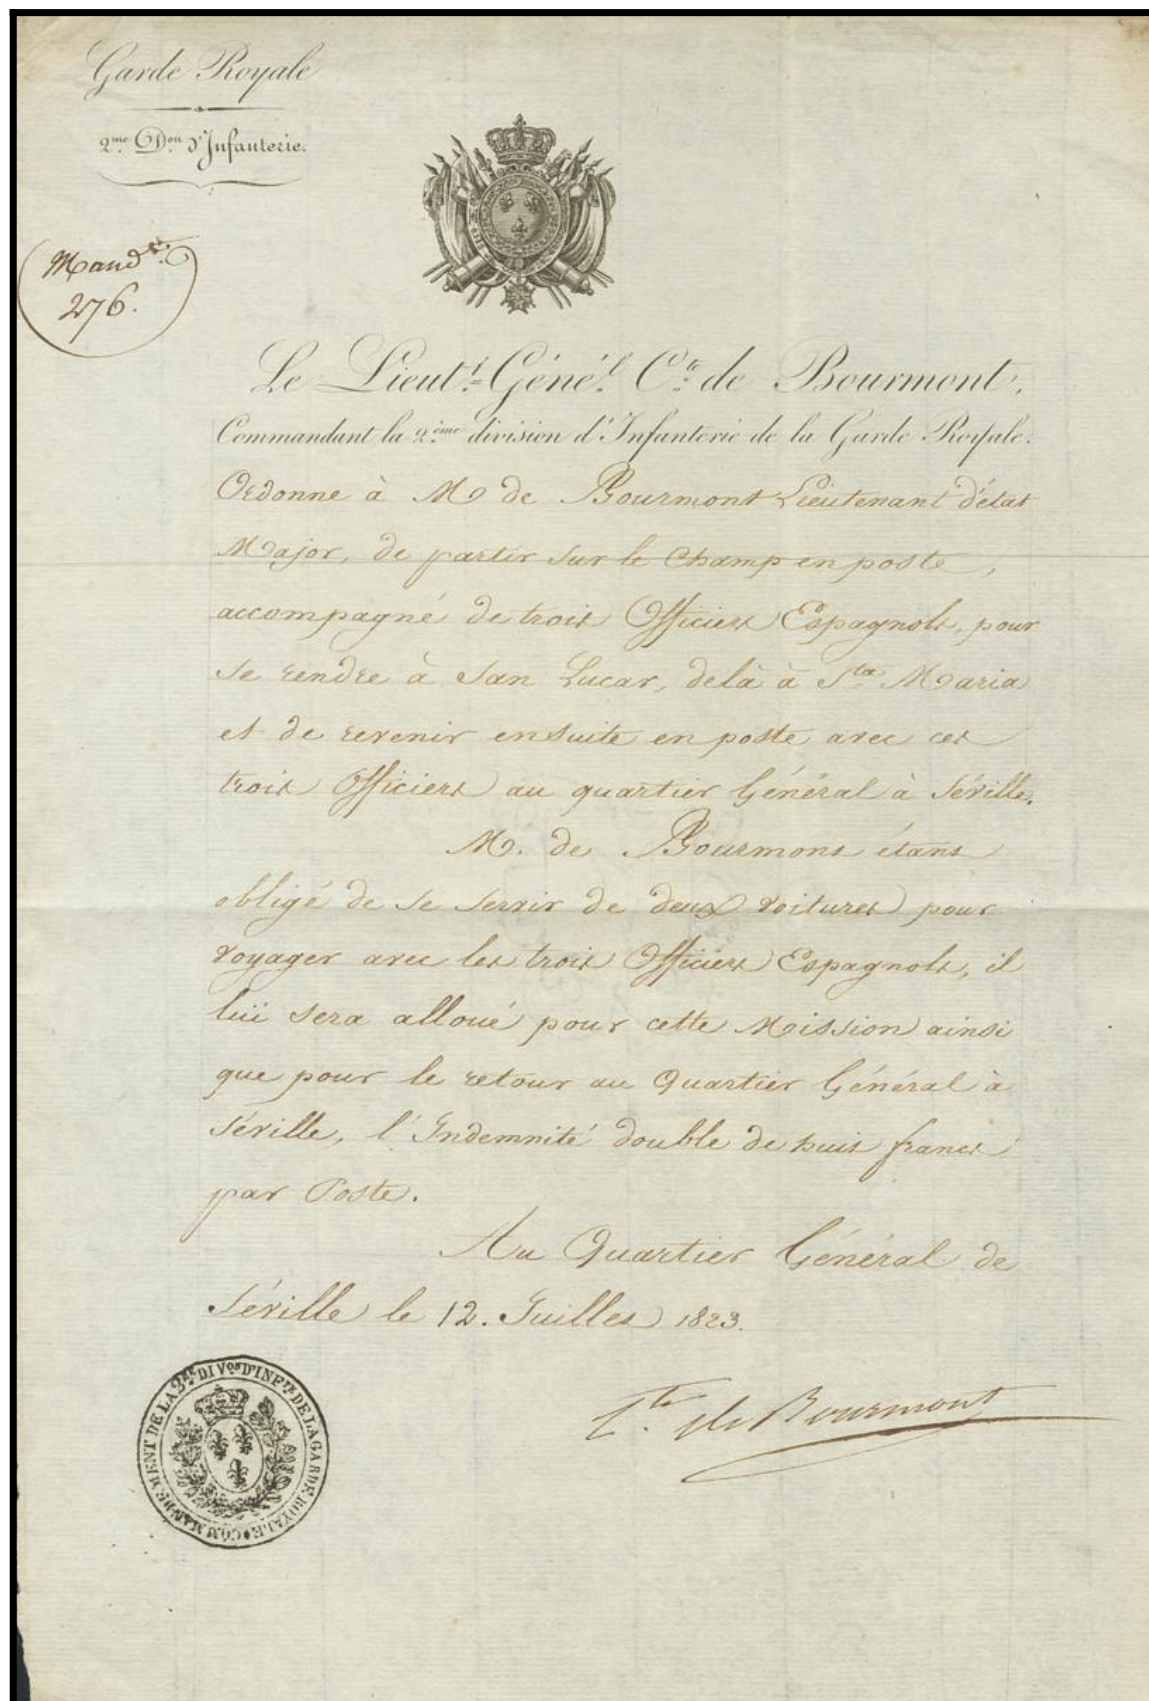 Garde Royale
2me. Don d'Infanterie.
Mandt.
276.
Le Lieutt. Génél. Cte. de Bourmont,
Commandant la 2ème division d'Infanterie de la Garde Royale.
Ordonne à M de Bourmont Lieutenant d'état
Major, de partir sur le Champ en poste,
accompagné de trois Officiers Espagnols, pour
se rendre à San Lucar, delà à Sta Maria
et de revenir ensuite en poste, avec ces
trois Officiers au quartier Général à Séville.
M. de Bourmont étant
obligé de se servir de deux voitures pour
voyager avec les trois Officiers Espagnols, il
lui sera alloué pour cette Mission ainsi
que pour le retour au Quartier Général à
Séville, l'Indemnité double de huit francs
par Poste.
Au Quartier Général de
Séville le 12. Juillet 1823.
Cte. de Bourmont
COMMANDEMENT DE LA 2me DIVon D'INFrie DE LA GARDE ROYALE